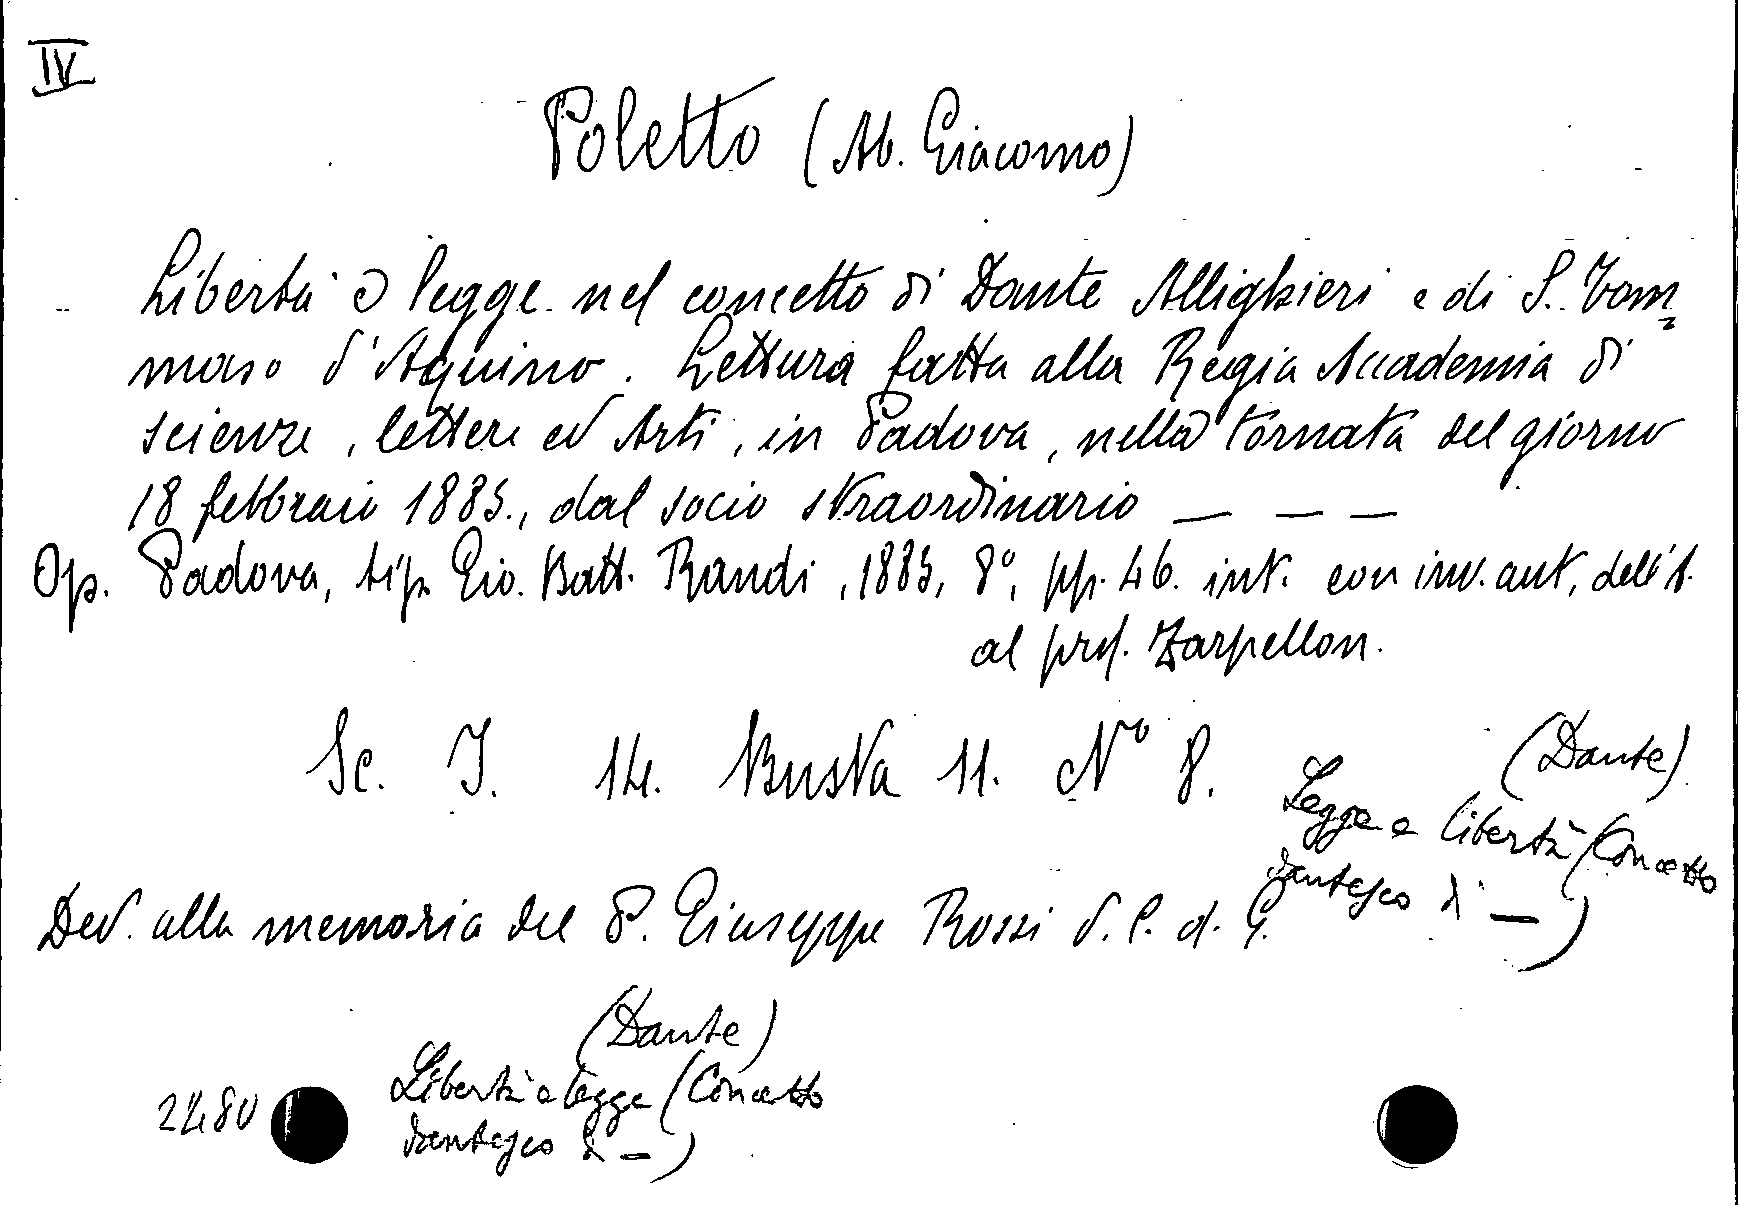 IV
Poletto (Ab. Giacomo)
Libertà e legge nel concetto di Dante Allighieri e di S. Tom=
maso d'Aquino. Lettura fatta alla Regia Accademia di
scienze, lettere ed Arti, in Padova, nella tornata del giorno
18 febbraio 1883., dal socio straordinario — — —
Op. Padova, tip. Gio. Batt. Randi, 1883, 8°, pp. 46. int. con inv. aut. dell'A.
al prof. Zarpellon.
Sc. I. 14. Busta 11. N° 8.
(Dante)
Legge e libertà (Concetto
dantesco di —)
Ded. alla memoria del P. Giuseppe Rossi d. C. d. G.
(Dante)
Libertà e legge (Concetto
dantesco di —)
2480